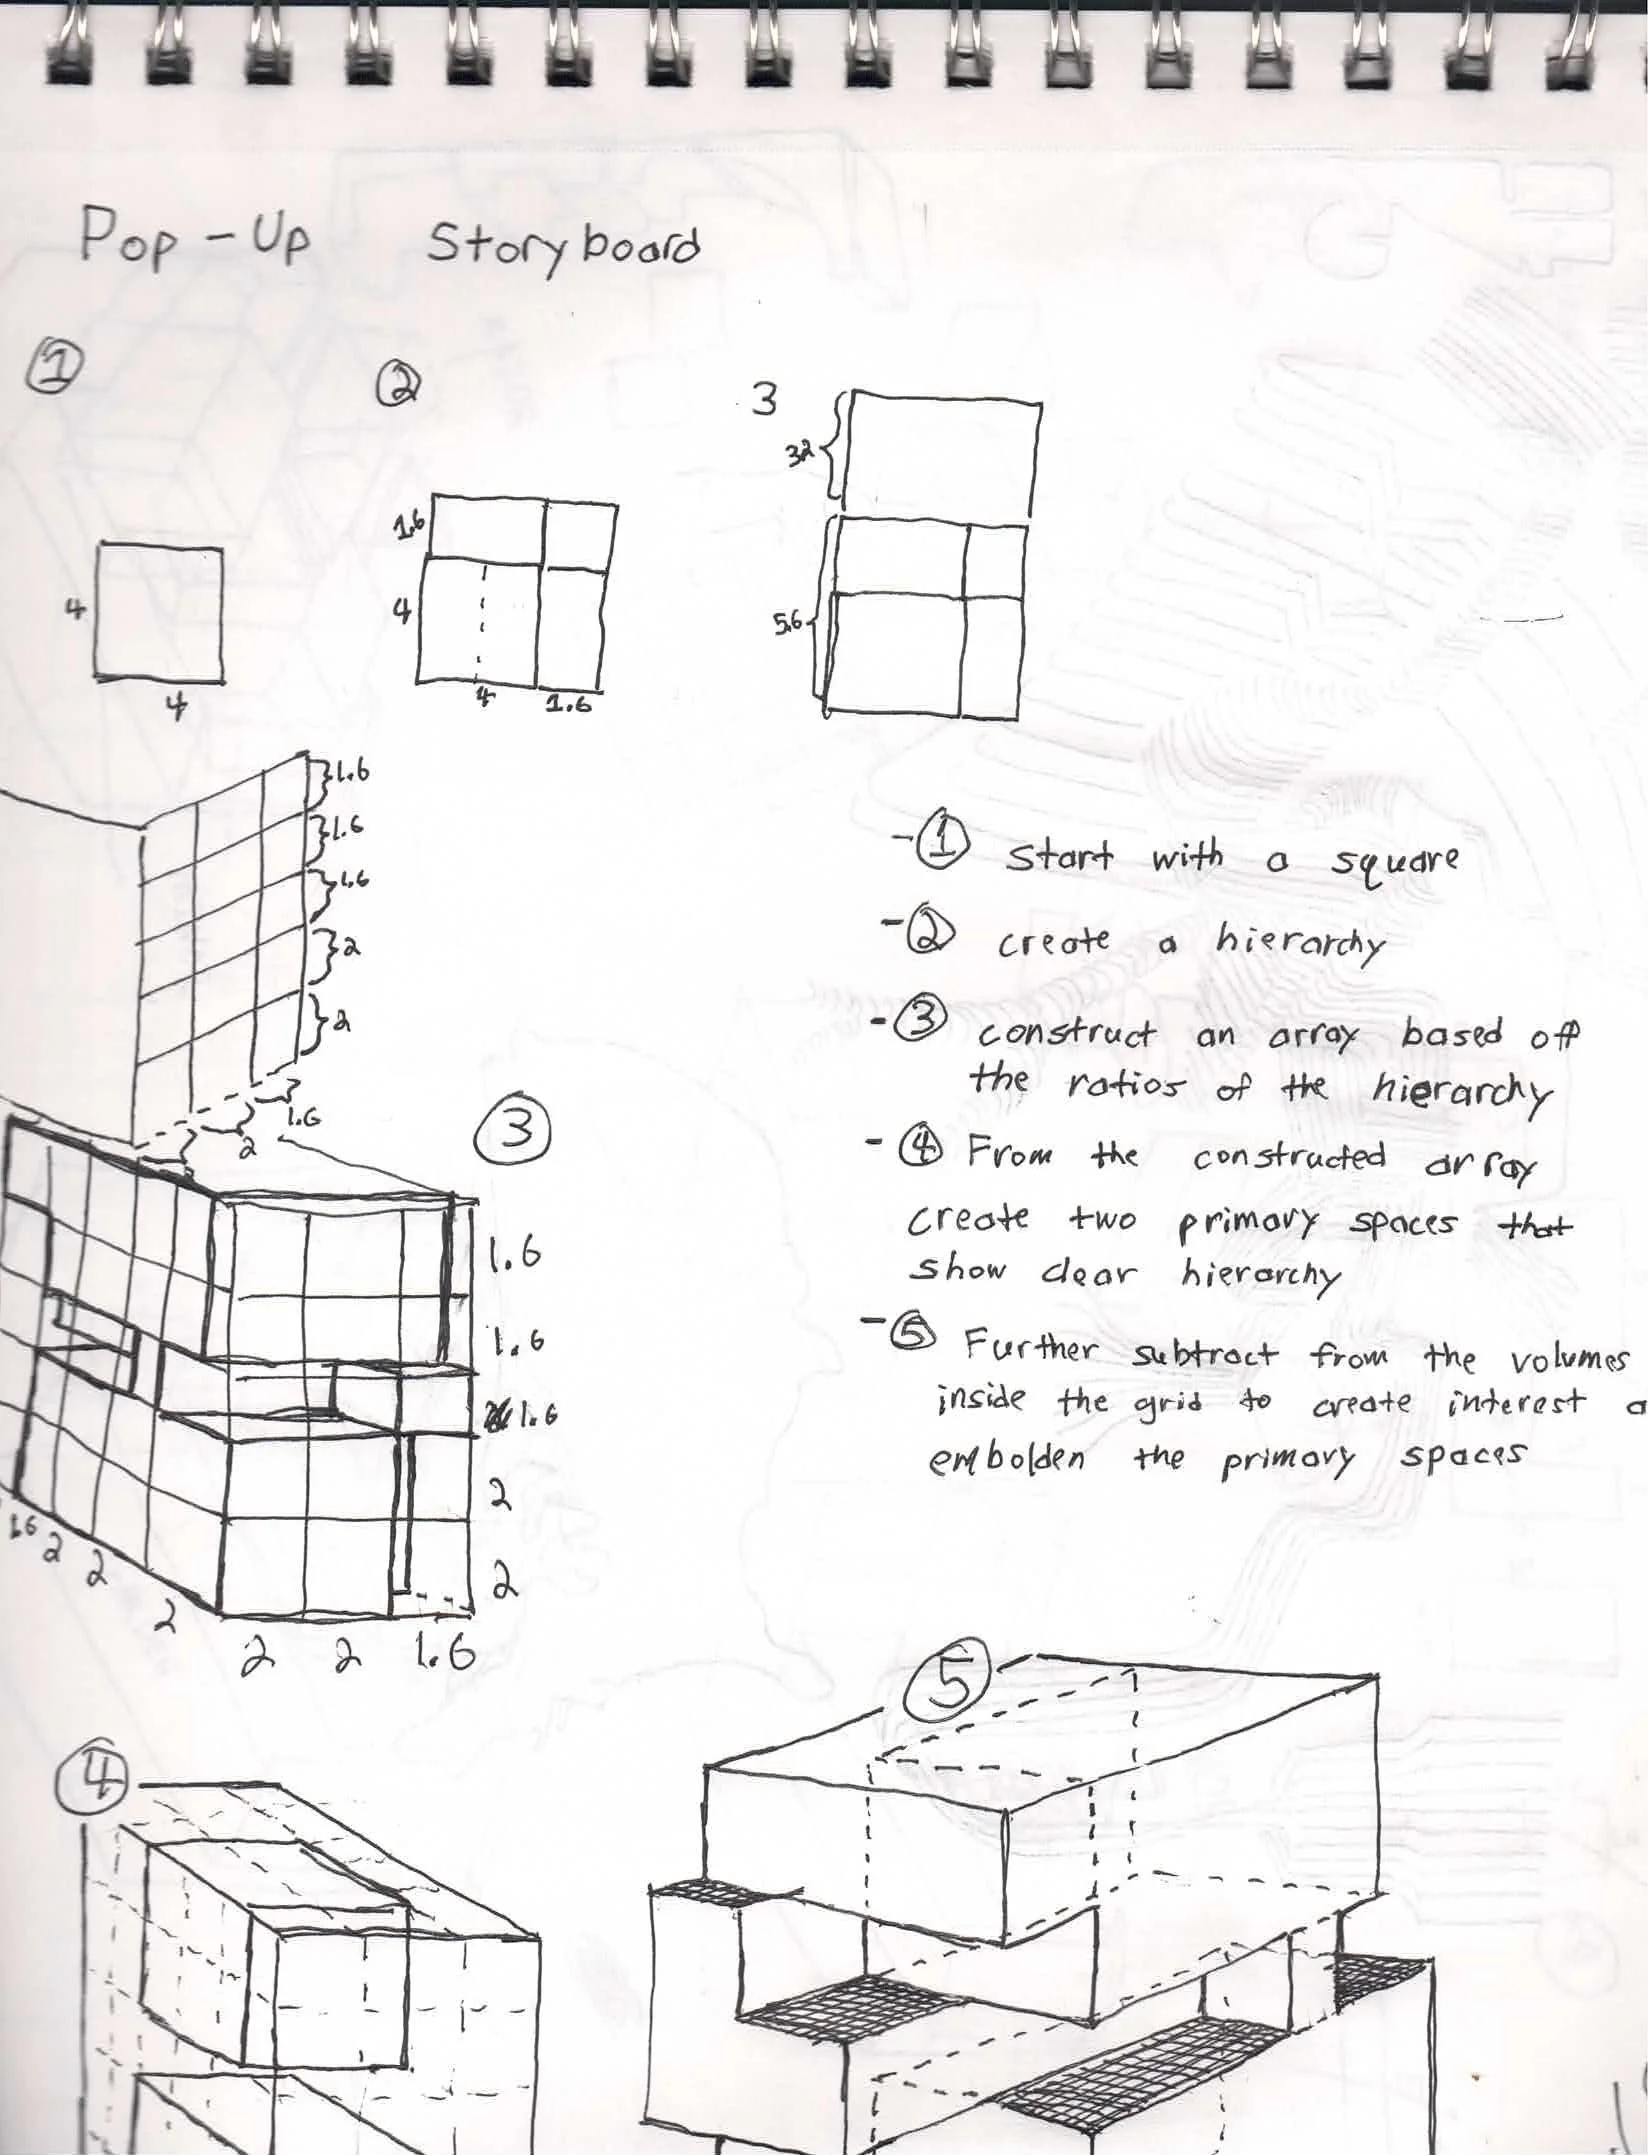 Pop-Up Storyboard
1
2
3
4
4
1.6
4
4
1.6
3.2
5.6
1.6
1.6
1.6
2
2
1.6
2
3
1.6
1.6
1.6
2
2
1.6
2
2
2
2
2
1.6
-1 Start with a square
-2 create a hierarchy
-3 construct an array based off
the ratios of the hierarchy
-4 From the constructed array
create two primary spaces that
show clear hierarchy
-5 Further subtract from the volumes
inside the grid to create interest
embolden the primary spaces
4
5